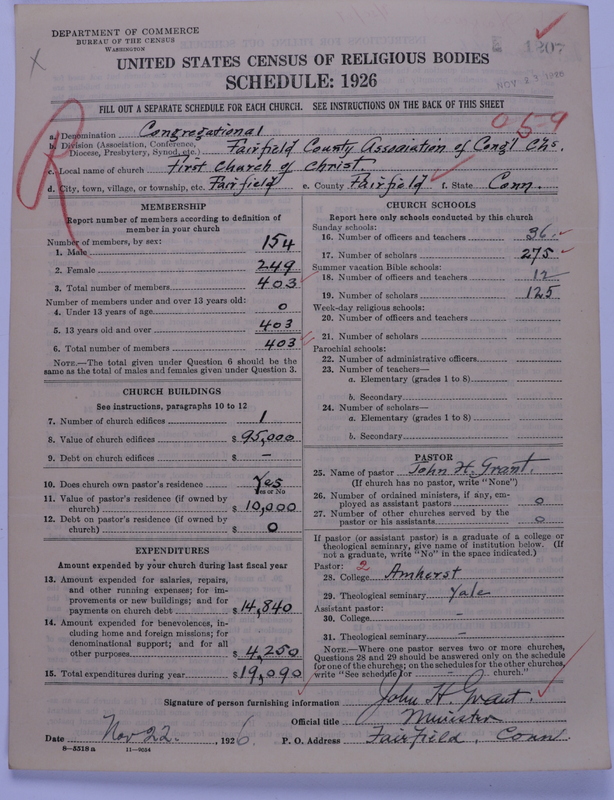 DEPARTMENT OF COMMERCE
BUREAU OF THE CENSUS
WASHINGTON
1207
NOV 23 1926
UNITED STATES CENSUS OF RELIGIOUS BODIES
SCHEDULE: 1926
FILL OUT A SEPARATE SCHEDULE FOR EACH CHURCH. SEE INSTRUCTIONS ON THE BACK OF THIS SHEET
059
a. Denomination Congregational
b. Division (Association, Conference, Diocese, Presbytery, Synod, etc.) Fairfield County Association of Cong'l Chs.
c. Local name of church First Church of Christ.
d. City, town, village, or township, etc. Fairfield e. County Fairfield f. State Conn.
MEMBERSHIP
Report number of members according to definition of
member in your church
Number of members, by sex:
1. Male 154
2. Female 249
3. Total number of members 403
Number of members under and over 13 years old:
4. Under 13 years of age 0
5. 13 years old and over 403
6. Total number of members 403
NOTE.—The total given under Question 6 should be the
same as the total of males and females given under Question 3.
CHURCH BUILDINGS
See instructions, paragraphs 10 to 12
7. Number of church edifices 1
8. Value of church edifices $ 95,000
9. Debt on church edifices $ –
10. Does church own pastor's residence Yes
Yes or No
11. Value of pastor's residence (if owned by
church) $ 10,000
12. Debt on pastor's residence (if owned by
church) $ 0
EXPENDITURES
Amount expended by your church during last fiscal year
13. Amount expended for salaries, repairs,
and other running expenses; for im-
provements or new buildings; and for
payments on church debt $ 14,840
14. Amount expended for benevolences, in-
cluding home and foreign missions; for
denominational support; and for all
other purposes $ 4,250
15. Total expenditures during year $ 19,090
CHURCH SCHOOLS
Report here only schools conducted by this church
Sunday schools:
16. Number of officers and teachers 36
17. Number of scholars 275
Summer vacation Bible schools:
18. Number of officers and teachers 12
19. Number of scholars 125
Week-day religious schools:
20. Number of officers and teachers
21. Number of scholars
Parochial schools:
22. Number of administrative officers
23. Number of teachers—
a. Elementary (grades 1 to 8)
b. Secondary
24. Number of scholars—
a. Elementary (grades 1 to 8)
b. Secondary
PASTOR
25. Name of pastor John H. Grant.
(If church has no pastor, write "None")
26. Number of ordained ministers, if any, em-
ployed as assistant pastors 0
27. Number of other churches served by the
pastor or his assistants 0
If pastor (or assistant pastor) is a graduate of a college or
theological seminary, give name of institution below. (If
not a graduate, write "No" in the space indicated.)
Pastor: 2
28. College Amherst
29. Theological seminary Yale
Assistant pastor:
30. College –
31. Theological seminary –
NOTE.—Where one pastor serves two or more churches,
Questions 28 and 29 should be answered only on the schedule
for one of the churches; on the schedules for the other churches,
write "See schedule for - - church."
Signature of person furnishing information John H. Grant.
Official title Minister
Date Nov 22., 1926. P. O. Address Fairfield, Conn.
8—5518a 11—9054